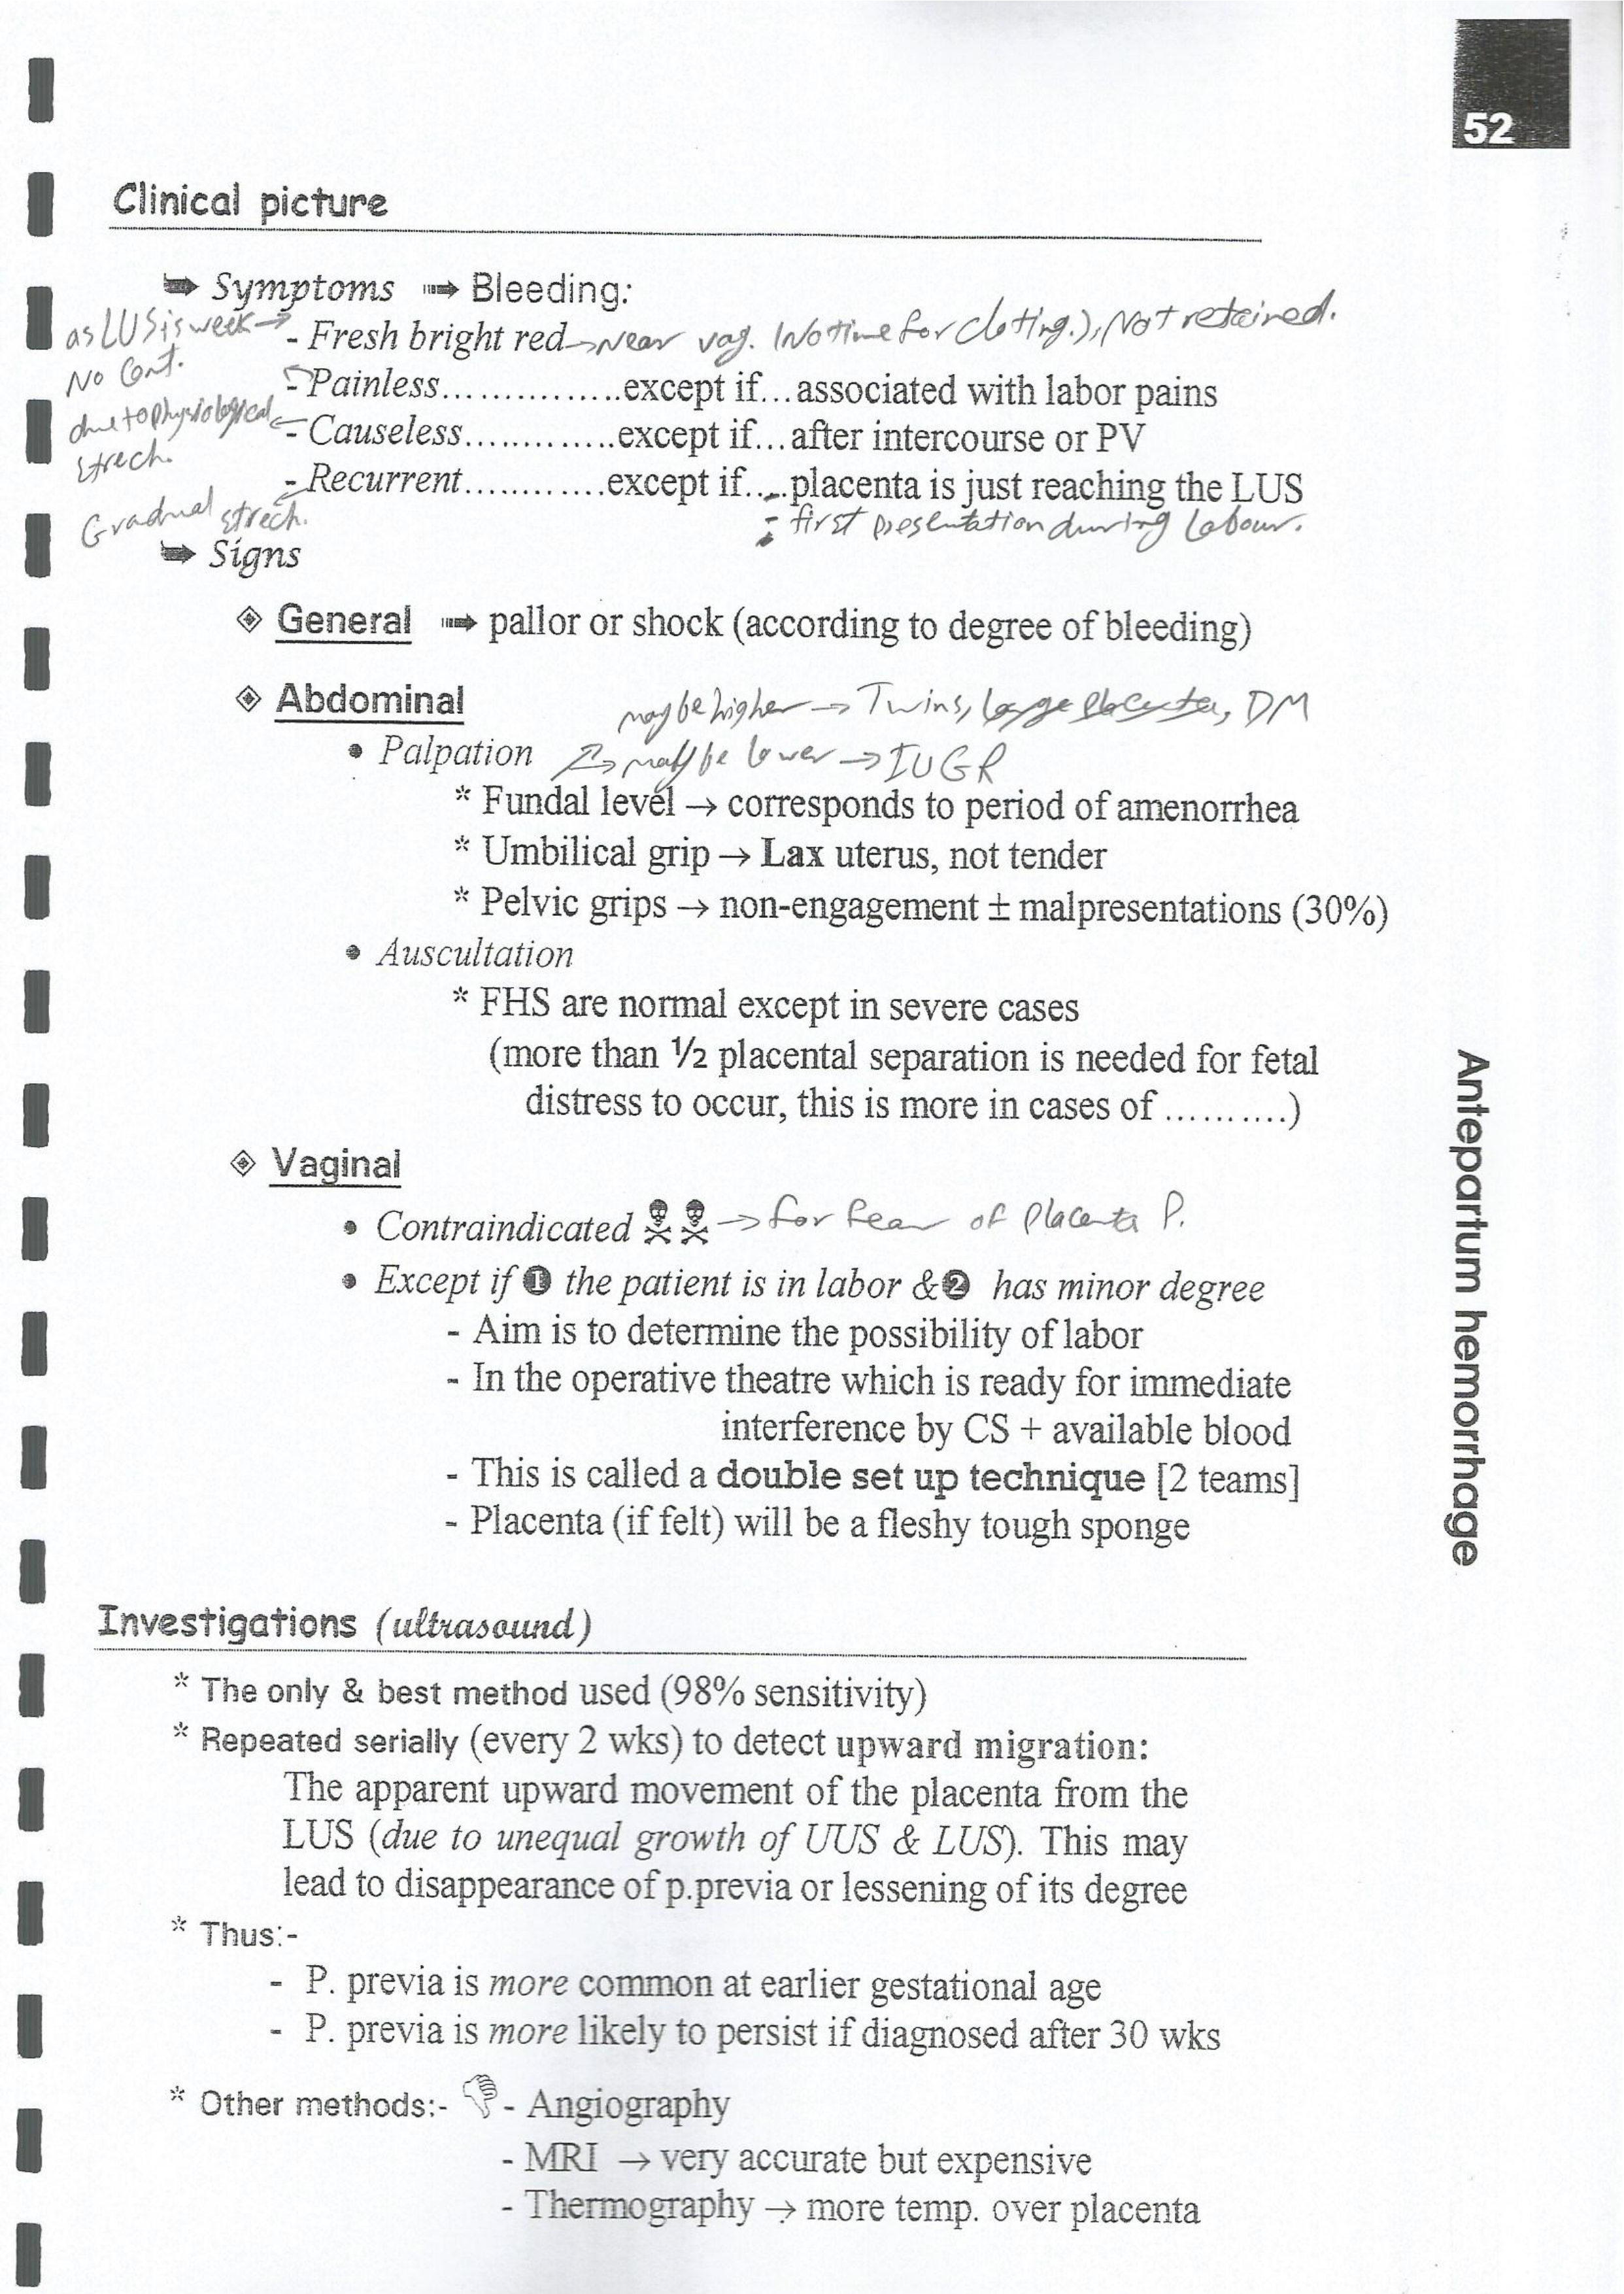 52
Clinical picture
➥ Symptoms ➟ Bleeding:
as LUS is week →
- Fresh bright red → Near vag. (No time for cloting.), Not retained.
No Cont.
- Painless...............except if...associated with labor pains
due to physiological
strech.
- Causeless.............except if...after intercourse or PV
- Recurrent............except if....placenta is just reaching the LUS
Gradual strech.
- first presentation during labour.
➥ Signs
◈ General ➟ pallor or shock (according to degree of bleeding)
◈ Abdominal
may be higher → Twins, large placenta, DM
• Palpation
may be lower → IUGR
* Fundal level → corresponds to period of amenorrhea
* Umbilical grip → Lax uterus, not tender
* Pelvic grips → non-engagement ± malpresentations (30%)
• Auscultation
* FHS are normal except in severe cases
(more than ½ placental separation is needed for fetal
distress to occur, this is more in cases of ..........)
◈ Vaginal
• Contraindicated ☠☠ → for fear of Placenta P.
• Except if ❶ the patient is in labor &❷ has minor degree
- Aim is to determine the possibility of labor
- In the operative theatre which is ready for immediate
interference by CS + available blood
- This is called a double set up technique [2 teams]
- Placenta (if felt) will be a fleshy tough sponge
Antepartum hemorrhage
Investigations (ultrasound)
* The only & best method used (98% sensitivity)
* Repeated serially (every 2 wks) to detect upward migration:
The apparent upward movement of the placenta from the
LUS (due to unequal growth of UUS & LUS). This may
lead to disappearance of p.previa or lessening of its degree
* Thus:-
- P. previa is more common at earlier gestational age
- P. previa is more likely to persist if diagnosed after 30 wks
* Other methods:- 👎 - Angiography
- MRI → very accurate but expensive
- Thermography → more temp. over placenta